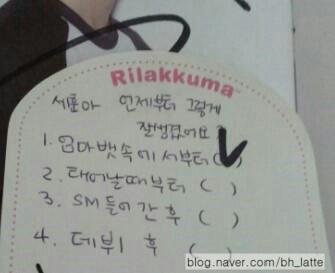 Rilakkuma
세훈아 언제부터 그렇게
잘생겼어요?
1. 엄마뱃속에서부터 (✓)
2. 태어날때부터 ( )
3. SM들어간 후 ( )
4. 데뷔 후 ( )
blog.naver.com/bh_latte